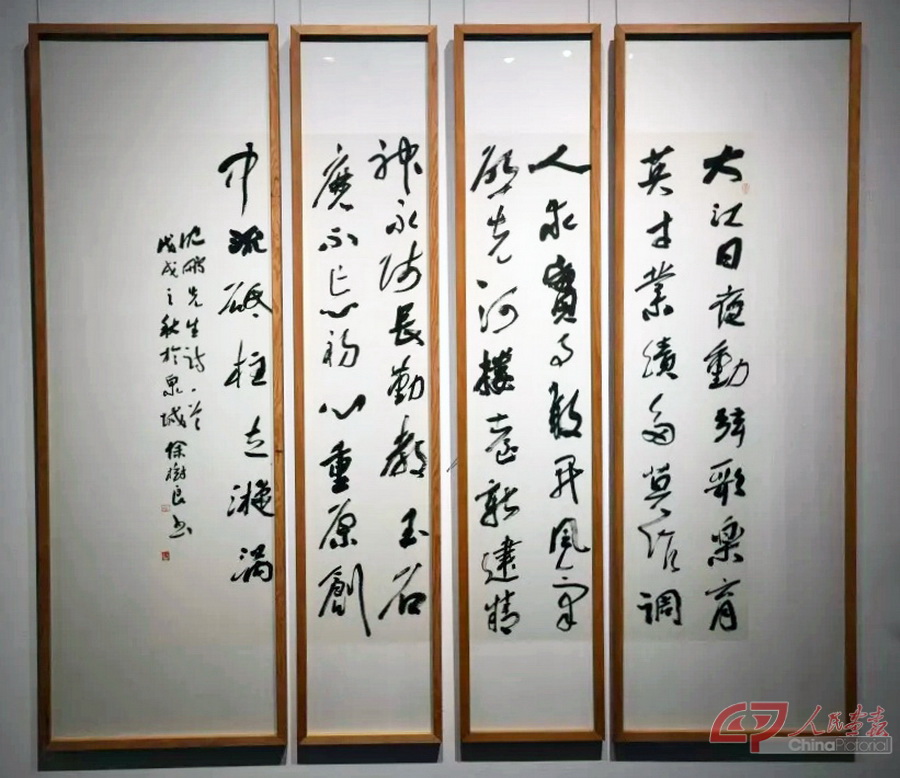 大江日夜動弦歌樂育
英才業績多莫作調
人求實事敢开風气
啟先河樓臺新建精
神永師長勤教玉石
磨不忘初心重原創
中流砥柱立漩渦
沈鵬先生詩一首
戊戌之秋於泉城徐樹良书
人民画报
ChinaPictorial